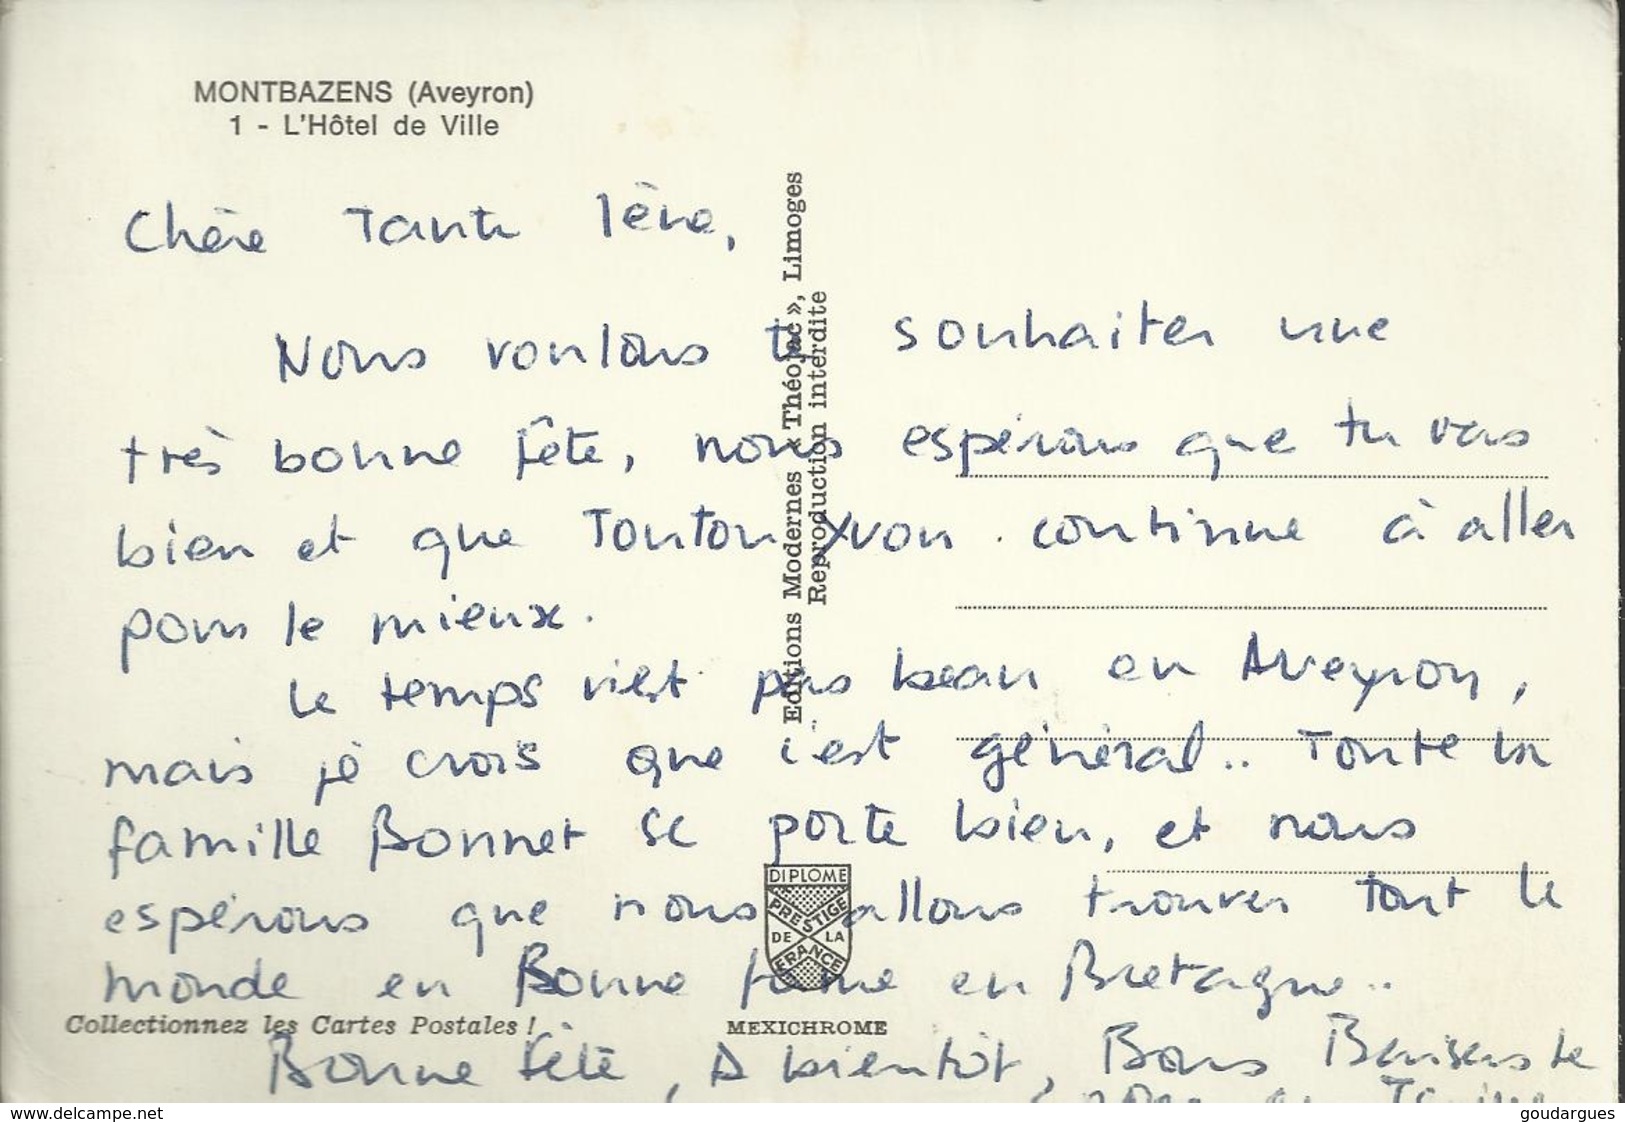 MONTBAZENS (Aveyron)
1 - L'Hôtel de Ville
Chère Tante Iène,
Nous voulons te souhaiter une
très bonne fête, nous espérons que tu vas
bien et que Tonton Yvon continue à aller
pour le mieux.
Le temps n'est pas beau en Aveyron,
mais je crois que c'est général.. Toute la
famille Bonnet se porte bien, et nous
espérons que nous allons trouver tout le
monde en Bonne forme en Bretagne..
Bonne fête, A bientôt, Bons Baisers de
Editions Modernes « Théojac », Limoges
Reproduction interdite
DIPLOME
PRESTIGE
DE LA
FRANCE
Collectionnez les Cartes Postales !
MEXICHROME
www.delcampe.net
goudargues